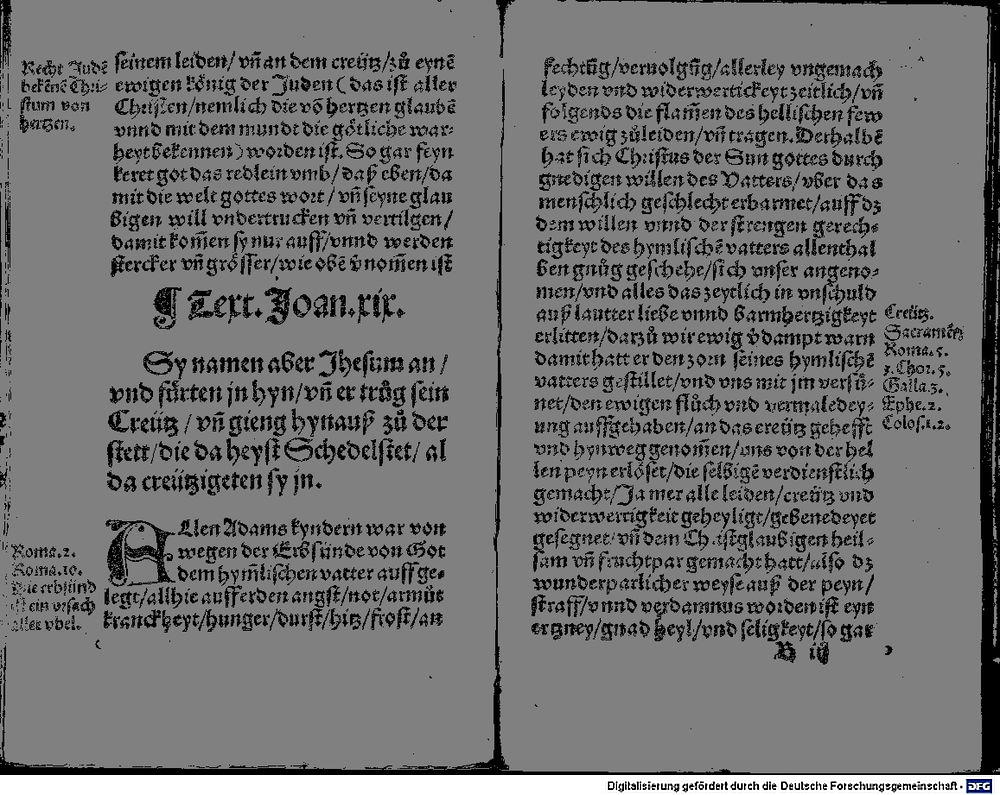 Recht Judē
bekēnē Chri-
stum von
hertzen.
seinem leiden/ vn̄ an dem creütz/zů eynē
ewigen König der Juden ( das ist aller
Christen/nemlich die vō hertzen glaubē
vnnd mit dem mundt die götliche war-
heyt bekennen) worden ist. So gar feyn
keret got das redlein vmb/ daß eben/da
mit die welt gottes wort/ vn̄ seyne glau
bigen will vndertrucken vn̄ vertilgen/
damit kom̄en sy nur auff/vnnd werden
stercker vn̄ grösser/wie obē v̄nom̄en ist
¶ Text. Joan.xix.
Sy namen aber Jhesum an /
vnd fürten jn hyn/vn̄ er trůg sein
Creütz / vn̄ gieng hynauß zů der
stett/die da heyst Schedelstet/ al
da creützigeten sy jn.
ALlen Adams kyndern war von
wegen der Erbsünde von Got
dem hym̄lischen vatter auff ge-
legt/allhie auff erden angst/not/armůt
kranckheyt/hunger/durst/hitz/frost/an
Roma.2.
Roma.10.
Die erbsünd
ist ein vrsach
aller vbel.
fechtūg/veruolgūg/allerley vngemach
leyden vnd widerwertickeyt zeitlich/vn̄
folgends die flam̄en des hellischen few
ers ewig zůleiden/vn̄ tragen. Derhalbē
hat sich Christus der Sun gottes durch
gnedigen willen des Vatters/vber das
menschlich geschlecht erbarmet/auff dz
dem willen vnnd der strengen gerech-
tigkeyt des hymlischē vatters allenthal
ben gnůg geschehe/sich vnser angeno-
men/vnd alles das zeytlich in vnschuld
auß lautter liebe vnnd barmhertzigkeyt
erlitten/darzů wir ewig v̄dampt warn
damit hatt er den zorn seines hymlischē
vatters gestillet/vnd vns mit jm versü-
net/den ewigen flůch vnd vermaledey-
ung auffgehaben/an das creütz gehefft
vnd hynweg genom̄en/vns von der hel
len peyn erlöset/die selbigē verdienstlich
gemacht/Ja mer alle leiden/creütz vnd
widerwertigkeit geheyligt/gebenedeyet
gesegnet/vn̄ dem Christglaubigen heil-
sam vn̄ fruchtpar gemacht hatt/also dz
wunderparlicher weyse auß der peyn/
straff/vnnd verdamnus worden ist eyn
ertzney/gnad heyl/vnd seligkeyt/so gar
Creütz.
Sacramētz
Roma.5.
1.Chor.5.
Galla.3.
Ephe.2.
Colos.1.2.
B iij
Digitalisierung gefördert durch die Deutsche Forschungsgemeinschaft - DFG